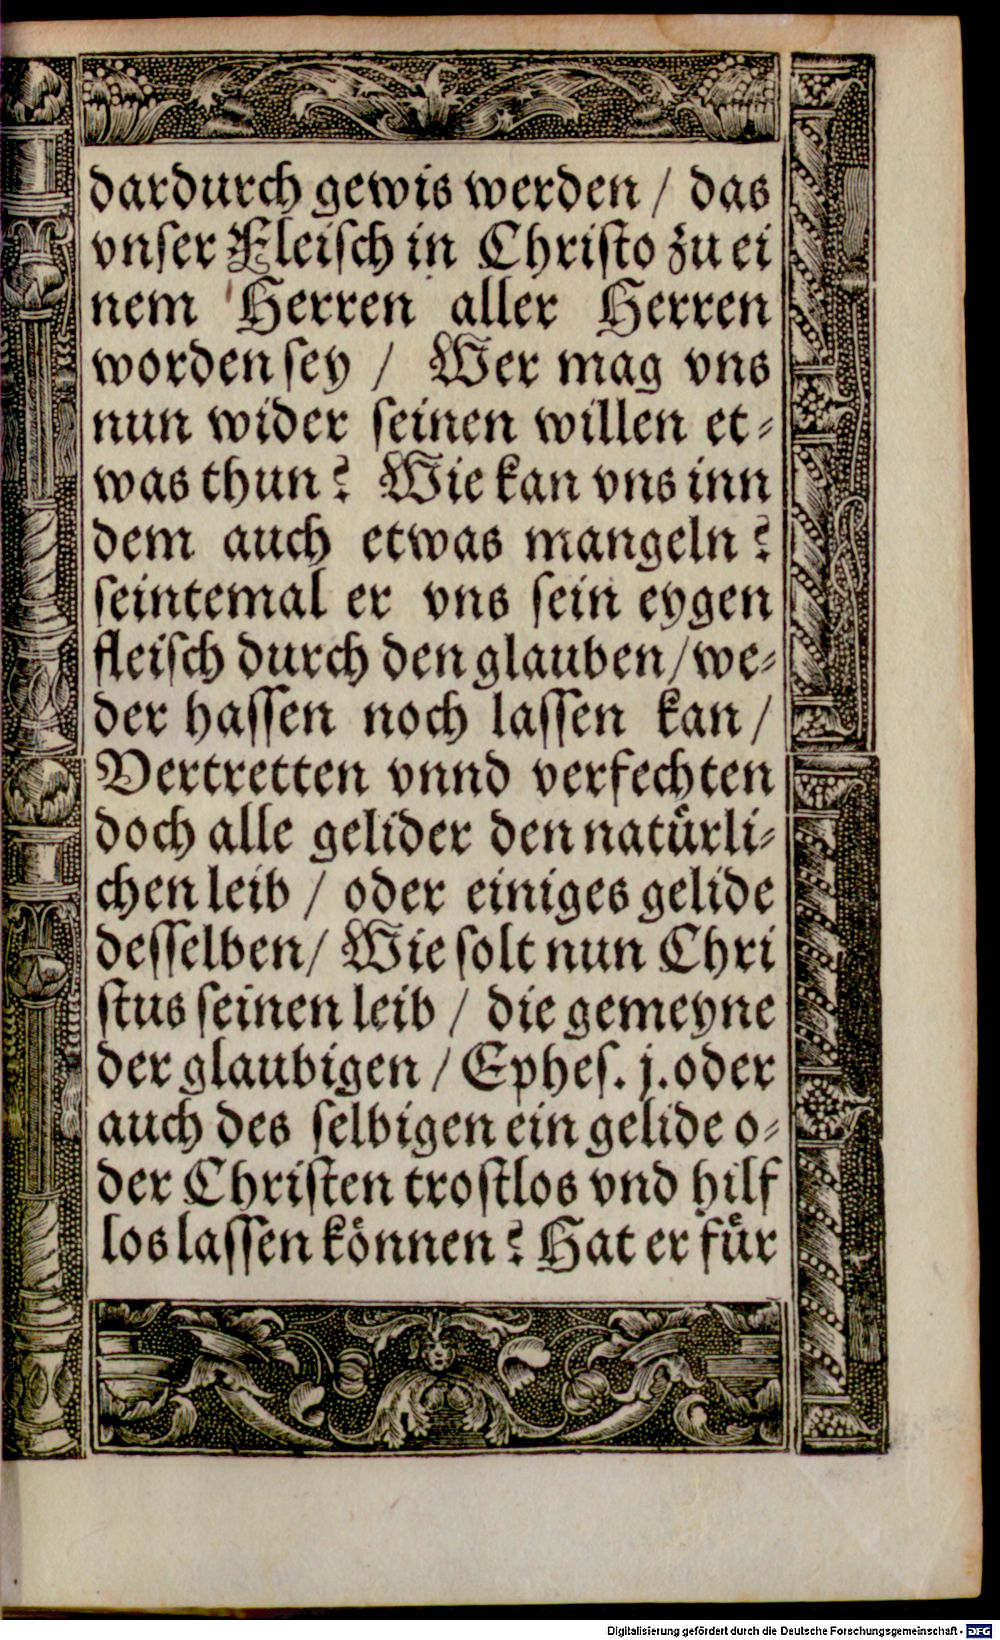 dardurch gewis werden / das
vnſer Fleiſch in Chriſto zu ei
nem Herren aller Herren
worden ſey / Wer mag vns
nun wider ſeinen willen et⸗
was thun? Wie kan vns inn
dem auch etwas mangeln?
ſeintemal er vns ſein eygen
fleiſch durch den glauben / we⸗
der haſſen noch laſſen kan /
Vertretten vnnd verfechten
doch alle gelider den natuͤrli⸗
chen leib / oder einiges gelide
deſſelben / Wie ſolt nun Chri
ſtus ſeinen leib / die gemeyne
der glaubigen / Epheſ. j. oder
auch des ſelbigen ein gelide o⸗
der Chriſten troſtlos vnd hilf
los laſſen koͤnnen? Hat er fuͤr
Digitalisierung gefördert durch die Deutsche Forschungsgemeinschaft - DFG